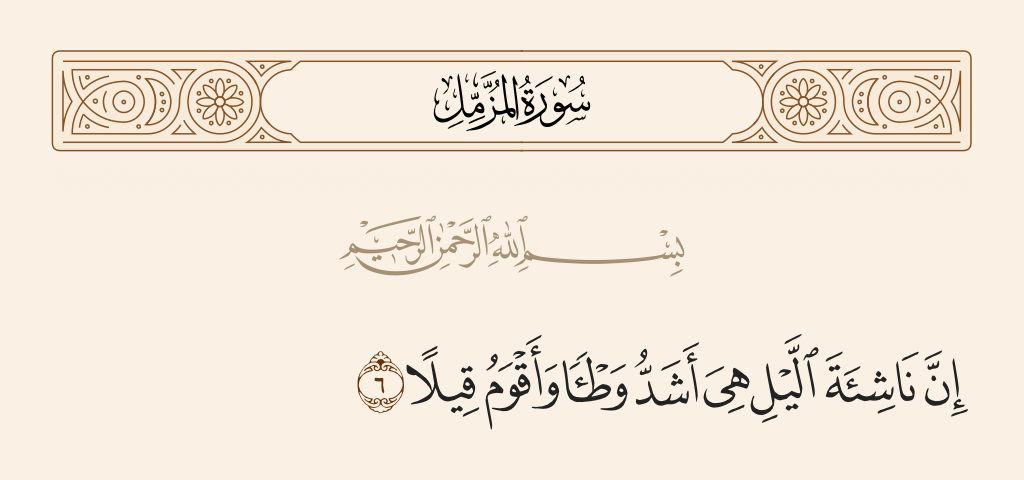 سُورَةُ المُزَّمِّلِ
بِسْمِ ٱللَّهِ ٱلرَّحْمَٰنِ ٱلرَّحِيمِ
إِنَّ نَاشِئَةَ ٱلَّيْلِ هِىَ أَشَدُّ وَطْـًٔا وَأَقْوَمُ قِيلًا ٦